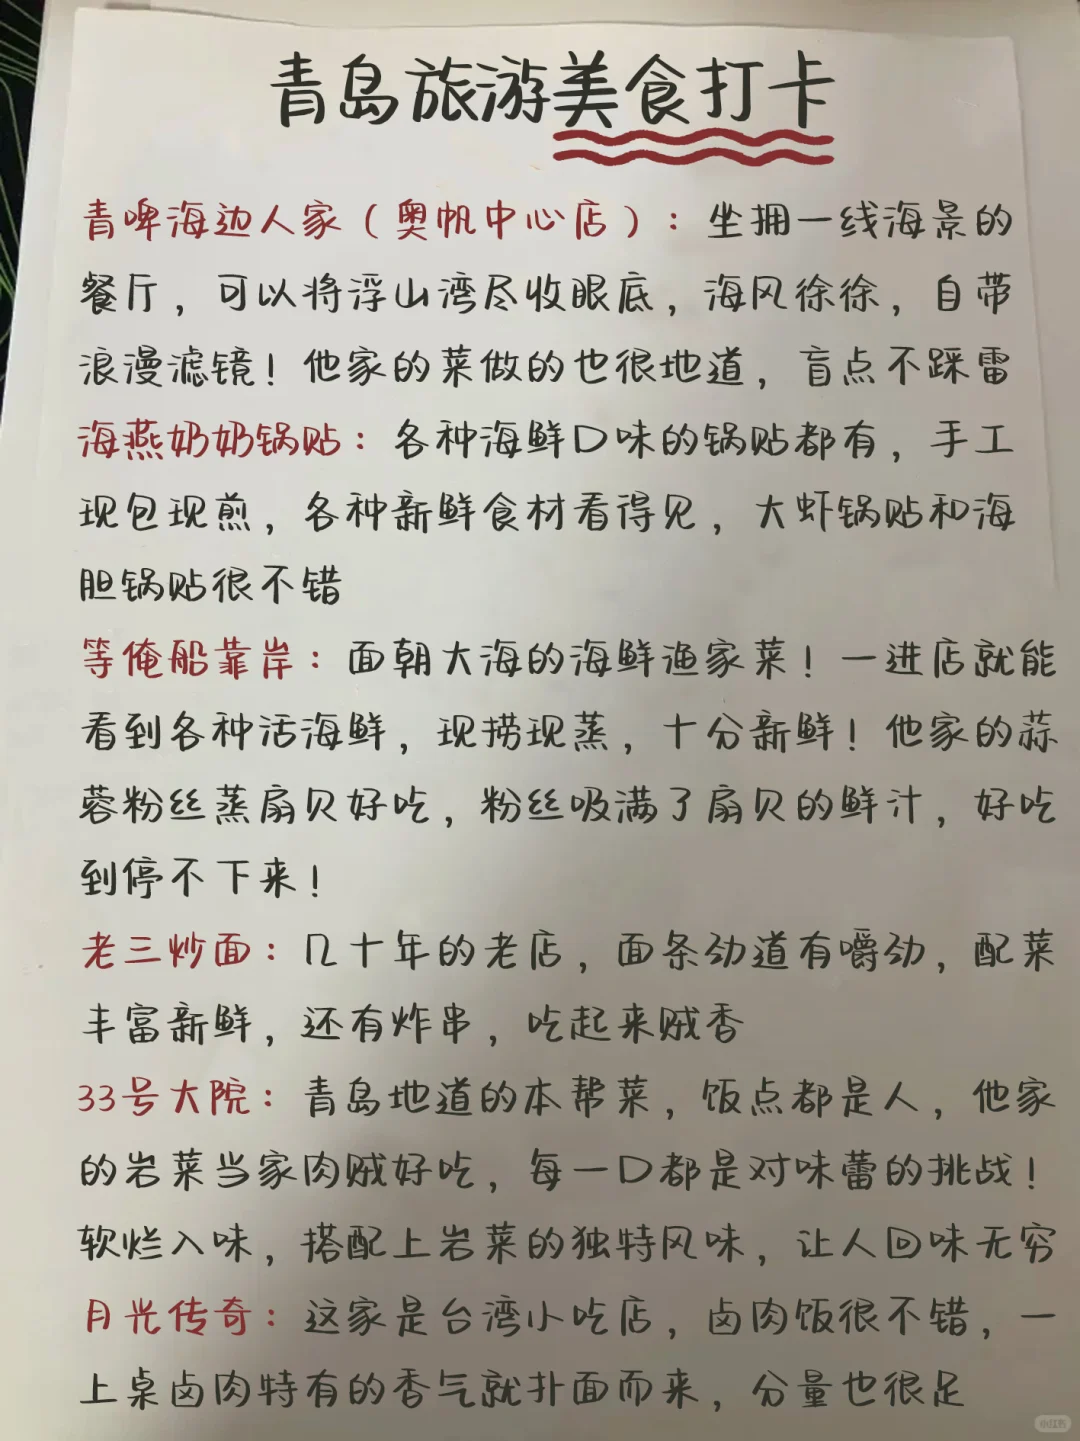 青岛旅游美食打卡
青啤海边人家（奥帆中心店）：坐拥一线海景的
餐厅，可以将浮山湾尽收眼底，海风徐徐，自带
浪漫滤镜！他家的菜做的也很地道，盲点不踩雷
海燕奶奶锅贴：各种海鲜口味的锅贴都有，手工
现包现煎，各种新鲜食材看得见，大虾锅贴和海
胆锅贴很不错
等俺船靠岸：面朝大海的海鲜渔家菜！一进店就能
看到各种活海鲜，现捞现蒸，十分新鲜！他家的蒜
蓉粉丝蒸扇贝好吃，粉丝吸满了扇贝的鲜汁，好吃
到停不下来！
老三炒面：几十年的老店，面条劲道有嚼劲，配菜
丰富新鲜，还有炸串，吃起来贼香
33号大院：青岛地道的本帮菜，饭点都是人，他家
的岩菜当家肉贼好吃，每一口都是对味蕾的挑战！
软烂入味，搭配上岩菜的独特风味，让人回味无穷
月光传奇：这家是台湾小吃店，卤肉饭很不错，一
上桌卤肉特有的香气就扑面而来，分量也很足
小红书